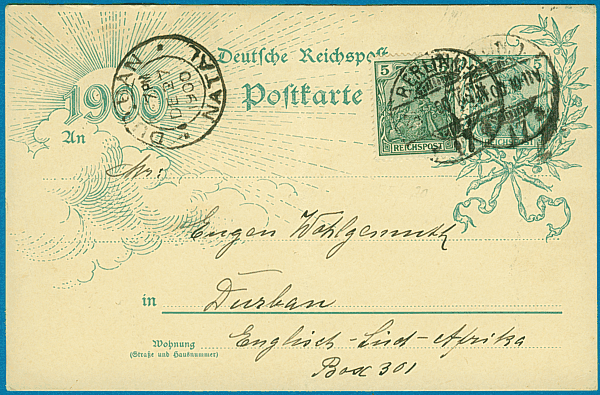 Deutsche Reichspost
1900 Postkarte
5
REICHSPOST
5
REICHSPOST
BERLIN
DURBAN
NATAL
DE 17
00
An
Mr.
Eugen Wohlgemuth
in Durban
Englisch-Süd-Afrika
Wohnung
(Straße und Hausnummer)
Box 301